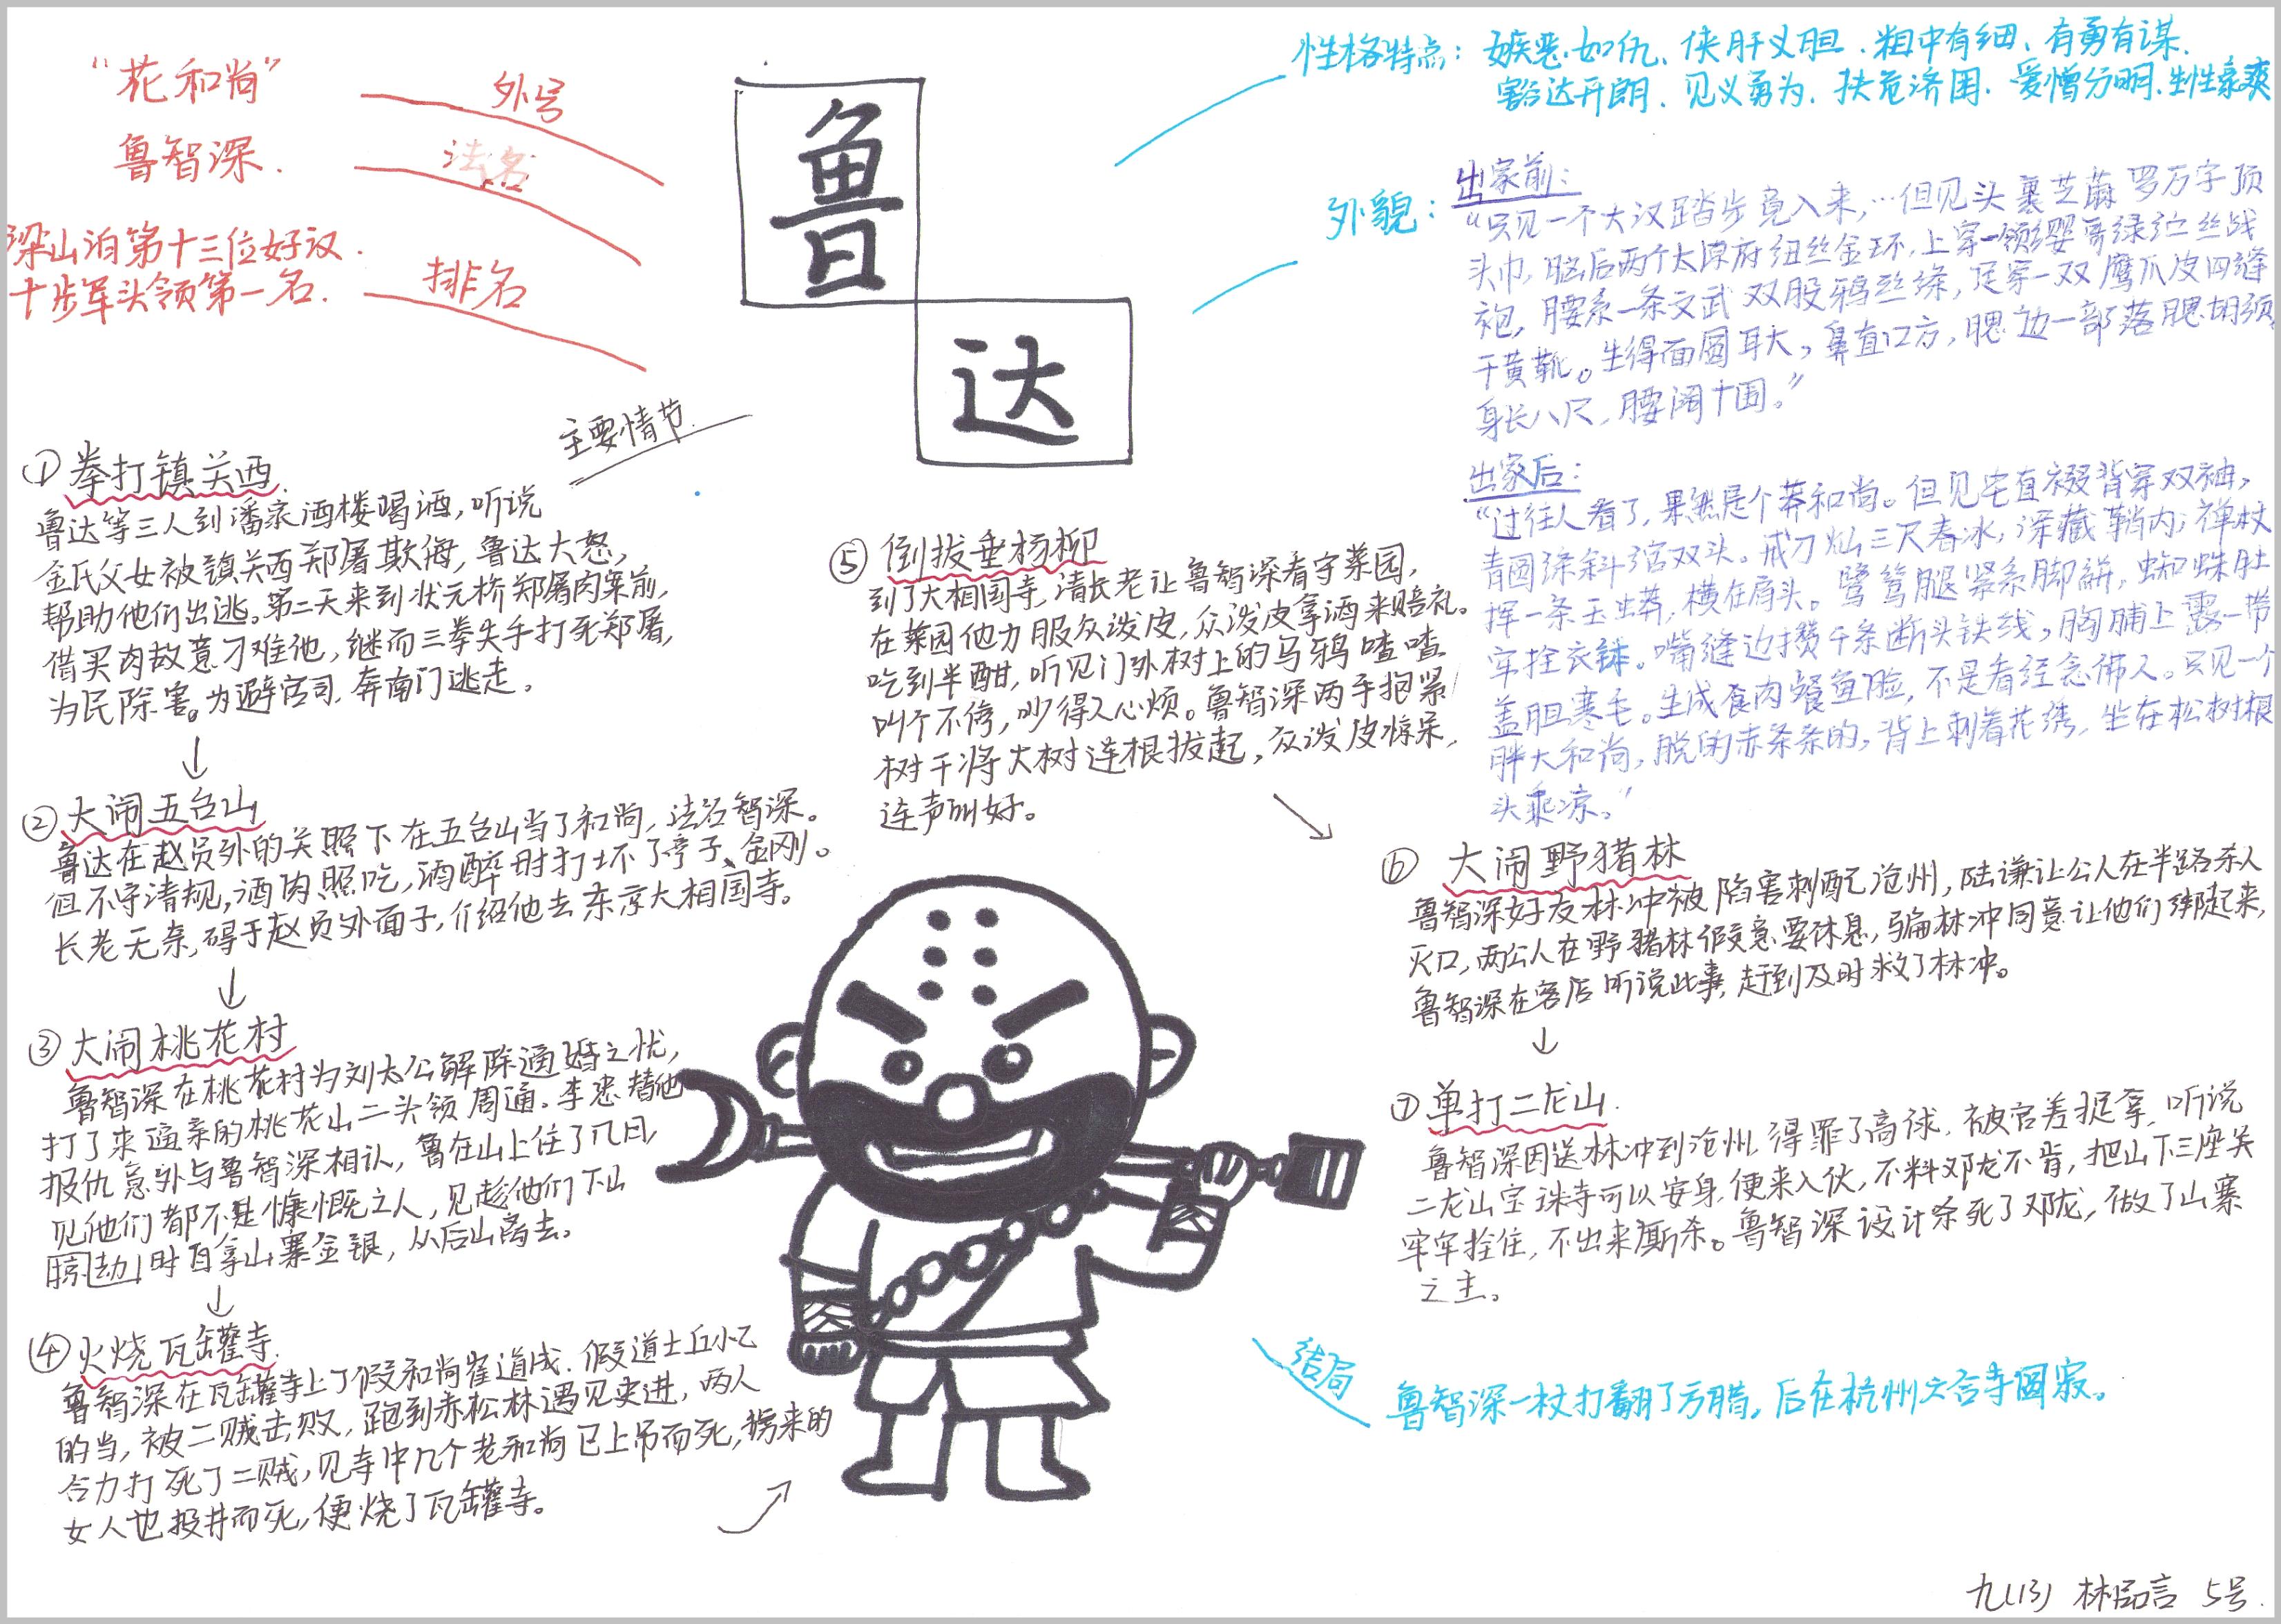 “花和尚”
外号
鲁智深.
法名
梁山泊第十三位好汉.
十步军头领第一名.
排名
鲁
达
性格特点：嫉恶如仇、侠肝义胆、粗中有细、有勇有谋.
豁达开朗、见义勇为、扶危济困、爱憎分明.生性豪爽
外貌：
出家前：
“只见一个大汉踏步竟入来,…但见头裹芝麻罗万字顶
头巾,脑后两个太原府纽丝金环,上穿一领鹦哥绿纻丝战
袍,腰系一条文武双股鸦丝绦,足穿一双鹰爪皮四缝
干黄靴。生得面圆耳大,鼻直口方,腮边一部落腮胡须,
身长八尺,腰阔十围。”
出家后：
“过往人看了,果然是个莽和尚。但见皂直裰背穿双袖,
青圆绦斜绾双头。戒刀灿三尺春冰,深藏鞘内；禅杖
挥一条玉蟒,横在肩头。鹭鸶腿紧系脚絣,蜘蛛肚
牢拴衣钵。嘴缝边攒千条断头铁线,胸脯上露一带
盖胆寒毛。生成食肉餐鱼脸,不是看经念佛人。只见一个
胖大和尚,脱的赤条条的,背上刺着花绣,坐在松树根
头乘凉。”
主要情节
①拳打镇关西.
鲁达等三人到潘家酒楼喝酒,听说
金氏父女被镇关西郑屠欺侮,鲁达大怒,
帮助他们出逃。第二天来到状元桥郑屠肉案前,
借买肉故意刁难他,继而三拳失手打死郑屠,
为民除害。为避官司,奔南门逃走。
②大闹五台山
鲁达在赵员外的关照下在五台山当了和尚,法名智深。
但不守清规,酒肉照吃,酒醉时打坏了亭子、金刚。
长老无奈,碍于赵员外面子,介绍他去东京大相国寺。
③大闹桃花村
鲁智深在桃花村为刘太公解除逼婚之忧,
打了来逼亲的桃花山二头领周通.李忠替他
报仇意外与鲁智深相认,鲁在山上住了几日,
见他们都不是慷慨之人,见趁他们下山
剽劫时自拿山寨金银,从后山离去。
④火烧瓦罐寺.
鲁智深在瓦罐寺上了假和尚崔道成.假道士丘小乙
的当,被二贼击败,跑到赤松林遇见史进,两人
合力打死了二贼,见寺中几个老和尚已上吊而死,拐来的
女人也投井而死,便烧了瓦罐寺。
⑤倒拔垂杨柳
到了大相国寺,清长老让鲁智深看守菜园,
在菜园他力服众泼皮,众泼皮拿酒来赔礼。
吃到半酣,听见门外树上的乌鸦喳喳
叫个不停,吵得人心烦。鲁智深两手抱紧
树干将大树连根拔起,众泼皮惊呆,
连声叫好。
⑥大闹野猪林
鲁智深好友林冲被陷害刺配沧州,陆谦让公人在半路杀人
灭口,两公人在野猪林假意要休息,骗林冲同意让他们绑起来,
鲁智深在客店听说此事,赶到及时救了林冲。
⑦单打二龙山.
鲁智深因送林冲到沧州,得罪了高俅,被官差捉拿,听说
二龙山宝珠寺可以安身,便来入伙,不料邓龙不肯,把山下三座关
牢牢拴住,不出来厮杀。鲁智深设计杀死了邓龙,做了山寨
之主。
结局
鲁智深一杖打翻了方腊,后在杭州六合寺圆寂。
九(13) 林品言 5号.